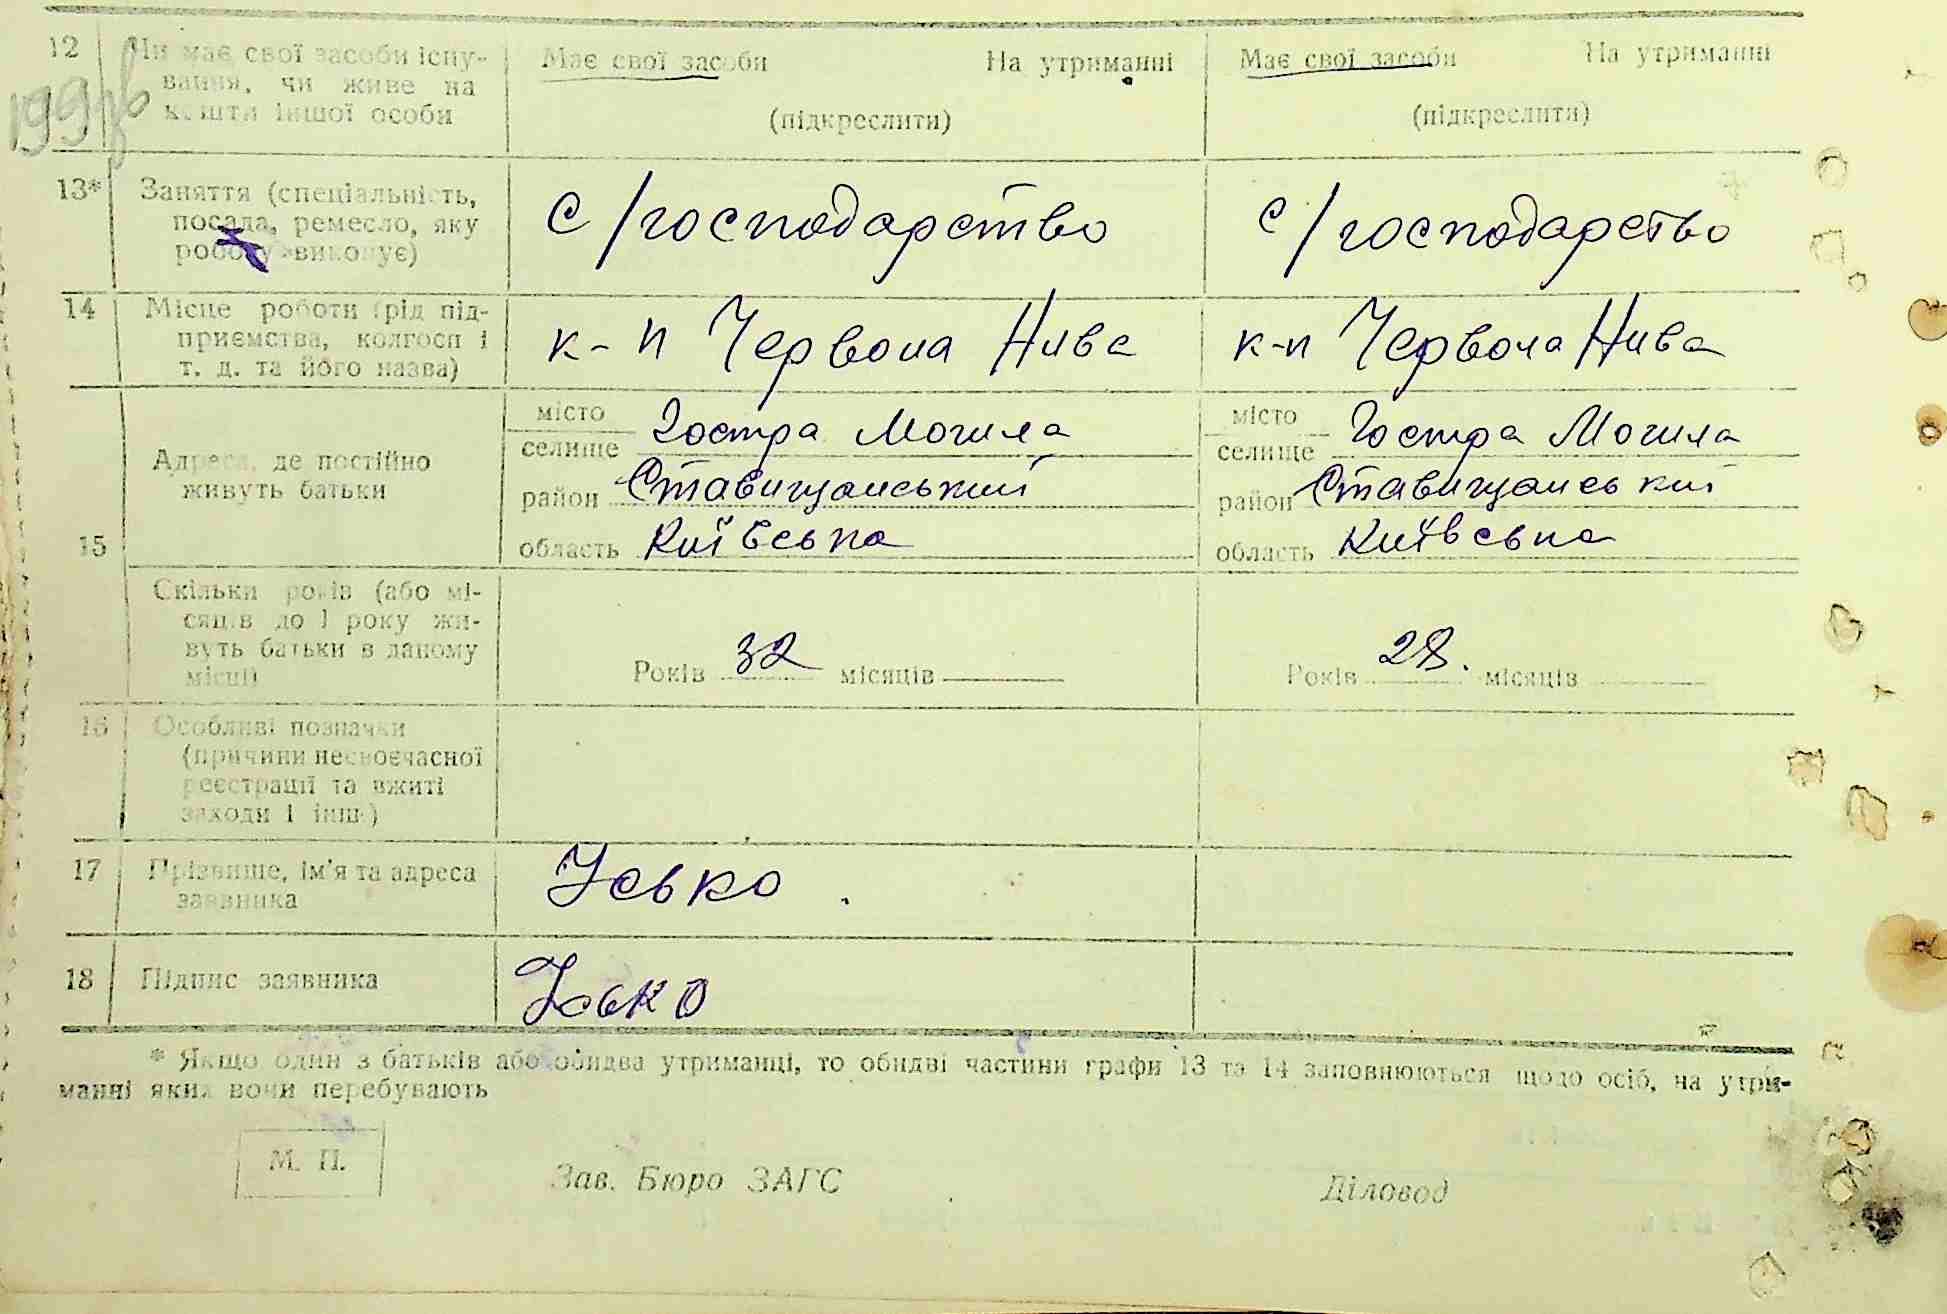 12 Чи має свої засоби існу- Має свої засоби На утриманні Має свої засоби На утриманні
вання, чи живе на
кошти іншої особи (підкреслити) (підкреслити)
13* Заняття (спеціальність,
посада, ремесло, яку с/господарство с/господарство
роботу виконує)
14 Місце роботи (рід під-
приємства, колгосп і к-п Червона Нива к-п Червона Нива
т. д. та його назва)
15 Адреса, де постійно
живуть батьки
місто місто
селище Гостра Могила селище Гостра Могила
район Ставищанський район Ставищанський
область Київська область Київська
Скільки років (або мі-
сяців до 1 року жи-
вуть батьки в даному
місці) Років 32 місяців Років 28. місяців
16 Особливі позначки
(причини несвоєчасної
реєстрації та вжиті
заходи і інш.)
17 Прізвище, ім'я та адреса
заявника Усько.
18 Підпис заявника Усько
* Якщо один з батьків або обидва утриманці, то обидві частини графи 13 та 14 заповнюються щодо осіб, на утри-
манні яких вони перебувають
М. П. Зав. Бюро ЗАГС Діловод